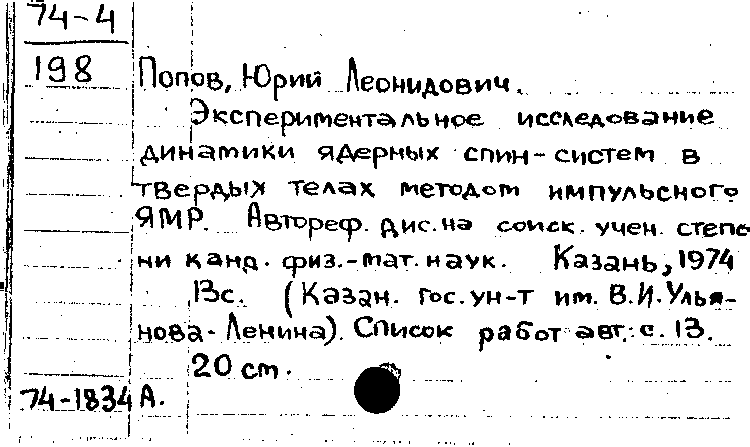 74-4
198
Попов, Юрий Леонидович.
Экспериментальное исследование
динамики ядерных спин-систем в
твердых телах методом импульсного
ЯМР. Автореф. дис. на соиск. учен. степе
ни канд. физ.-мат. наук. Казань, 1974
13с. (Казан. гос. ун-т им. В.И. Улья-
нова-Ленина). Список работ авт.: с. 13.
20 см.
74-1834А.